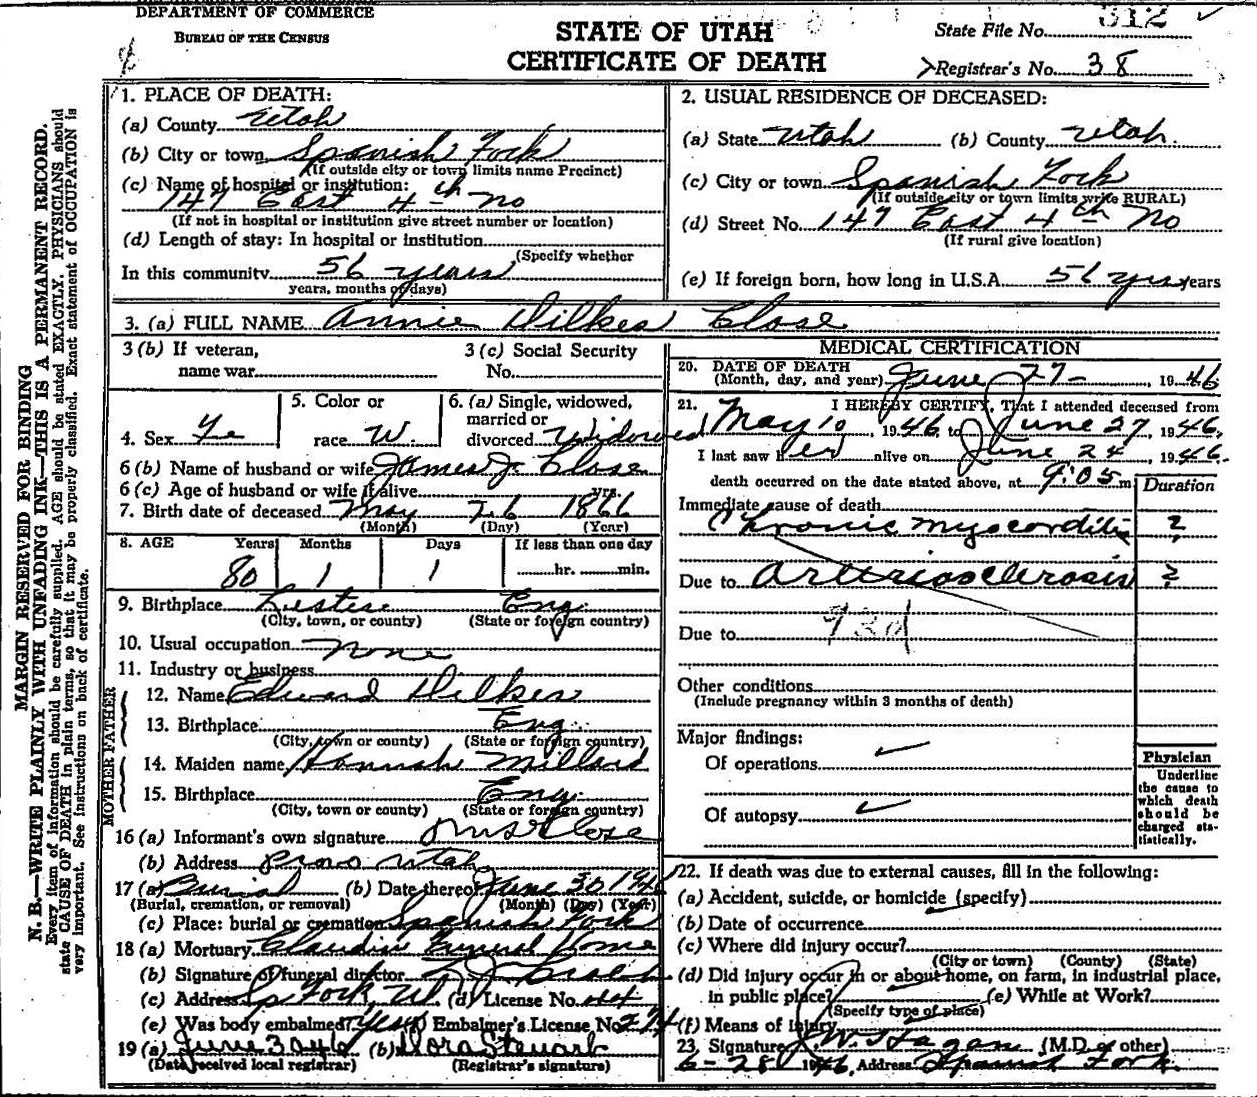 DEPARTMENT OF COMMERCE
BUREAU OF THE CENSUS
STATE OF UTAH
CERTIFICATE OF DEATH
State File No. 312
Registrar's No. 38
MARGIN RESERVED FOR BINDING
N. B.—WRITE PLAINLY WITH UNFADING INK—THIS IS A PERMANENT RECORD.
Every item of information should be carefully supplied. AGE should be stated EXACTLY. PHYSICIANS should
state CAUSE OF DEATH in plain terms, so that it may be properly classified. Exact statement of OCCUPATION is
very important. See instructions on back of certificate.
1. PLACE OF DEATH:
(a) County Utah
(b) City or town Spanish Fork
(If outside city or town limits name Precinct)
(c) Name of hospital or institution:
147 East 4th No
(If not in hospital or institution give street number or location)
(d) Length of stay: In hospital or institution
(Specify whether
In this community 56 years
years, months or days)
2. USUAL RESIDENCE OF DECEASED:
(a) State Utah (b) County Utah
(c) City or town Spanish Fork
(If outside city or town limits write RURAL)
(d) Street No. 147 East 4th No
(If rural give location)
(e) If foreign born, how long in U.S.A. 56 yrs years
3. (a) FULL NAME Annie Dilkes Close
3 (b) If veteran,
name war
3 (c) Social Security
No.
4. Sex Fe
5. Color or
race W.
6. (a) Single, widowed,
married or
divorced Widowed
6 (b) Name of husband or wife James J. Close
6 (c) Age of husband or wife if alive yrs.
7. Birth date of deceased May 26 1866
(Month) (Day) (Year)
8. AGE Years Months Days If less than one day
80 1 1 hr. min.
9. Birthplace Eng.
(City, town, or county) (State or foreign country)
10. Usual occupation none
11. Industry or business
FATHER
12. Name Edward Dilkes
13. Birthplace Eng.
(City, town or county) (State or foreign country)
MOTHER
14. Maiden name Hannah Millard
15. Birthplace Eng.
(City, town or county) (State or foreign country)
16 (a) Informant's own signature Close
(b) Address Provo Utah
17 (a) Burial (b) Date thereof June 30 1946
(Burial, cremation, or removal) (Month) (Day) (Year)
(c) Place: burial or cremation Spanish Fork
18 (a) Mortuary Claudin Funeral Home
(b) Signature of funeral director
(c) Address Sp Fork, Ut (d) License No. 44
(e) Was body embalmed? yes (f) Embalmer's License No. 274
19 (a) June 30 46 (b) Dora Stewart
(Date received local registrar) (Registrar's signature)
MEDICAL CERTIFICATION
20. DATE OF DEATH
(Month, day, and year) June 27- , 1946
21. I HEREBY CERTIFY, That I attended deceased from
May 10 , 1946, to June 27, 1946.
I last saw her alive on June 24 , 1946.
death occurred on the date stated above, at 9:05 m
Duration
Immediate cause of death
Chronic myocarditis ?
Due to Arteriosclerosis ?
Due to 93d
Other conditions
(Include pregnancy within 3 months of death)
Major findings:
Of operations
Of autopsy
Physician
Underline
the cause to
which death
should be
charged sta-
tistically.
22. If death was due to external causes, fill in the following:
(a) Accident, suicide, or homicide (specify)
(b) Date of occurrence
(c) Where did injury occur?
(City or town) (County) (State)
(d) Did injury occur in or about home, on farm, in industrial place,
in public place? (e) While at Work?
(Specify type of place)
(f) Means of injury
23. Signature J. W. Hagan (M.D. or other)
6-28 1946, Address Spanish Fork.